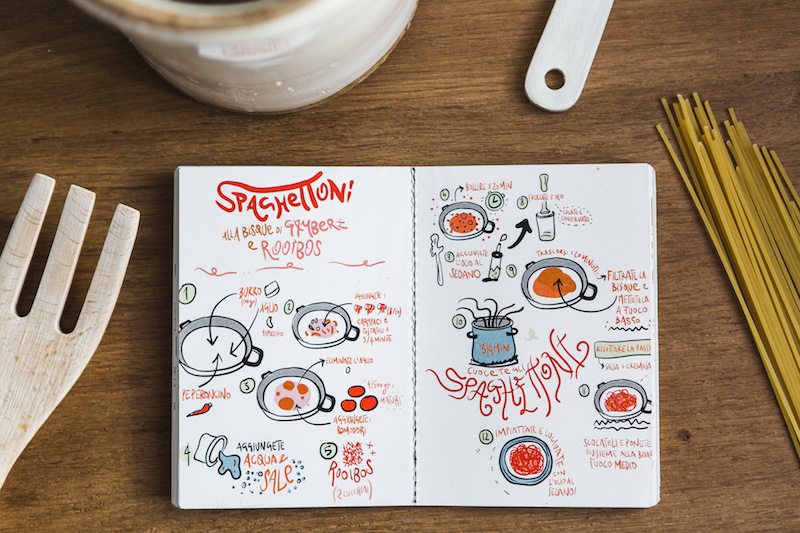 SPAGHETTONI
ALLA BISQUE DI GAMBERI
E ROOIBOS
1
BURRO
AGLIO
PEPERONCINO
2
AGGIUNGETE
3/4 MINUTI
3
ELIMINATE L'AGLIO
AGGIUNGETE I
POMODORI
4
AGGIUNGETE
ACQUA E
SALE
5
ROOIBOS
(2 CUCCHIAI)
6
BOLLIRE X 20 MIN
7
AGGIUNGETE
L'OLIO AL
SEDANO
8
FRULLATE
9
TRASCORSI I 20 MINUTI
FILTRATE LA
BISQUE E
METTETELA
A FUOCO
BASSO
10
CUOCETE GLI
SPAGHETTONI
RISOTTARE LA PASTA
SALSA + CREMOSA
11
SCOLATELI E PONETELI
INSIEME ALLA BISQUE
FUOCO MEDIO
12
IMPIATTATE E
CON L'OLIO AL
SEDANO!